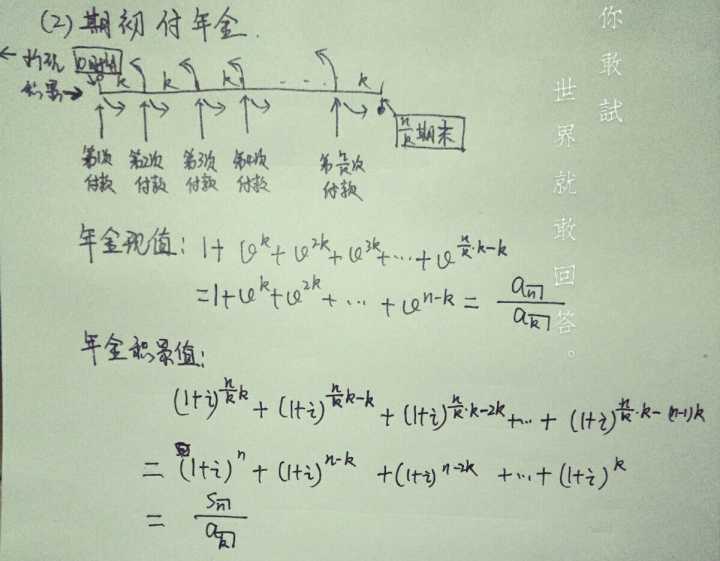 (2) 期初付年金.
← 折现 0时刻
积累→
k k k ... k
n/k 期末
第1次付款 第2次付款 第3次付款 第4次付款 第n/k次付款
年金现值: 1 + v^k + v^2k + v^3k + ... + v^(n/k·k-k)
= 1 + v^k + v^2k + ... + v^(n-k) = a_n̅| / a_k̅|
年金积累值:
(1+i)^(n/k k) + (1+i)^(n/k k-k) + (1+i)^(n/k·k-2k) + ... + (1+i)^(n/k·k-(n-1)k)
= (1+i)^n + (1+i)^(n-k) + (1+i)^(n-2k) + ... + (1+i)^k
= s_n̅| / a_k̅|
你敢試
世界就敢回答。